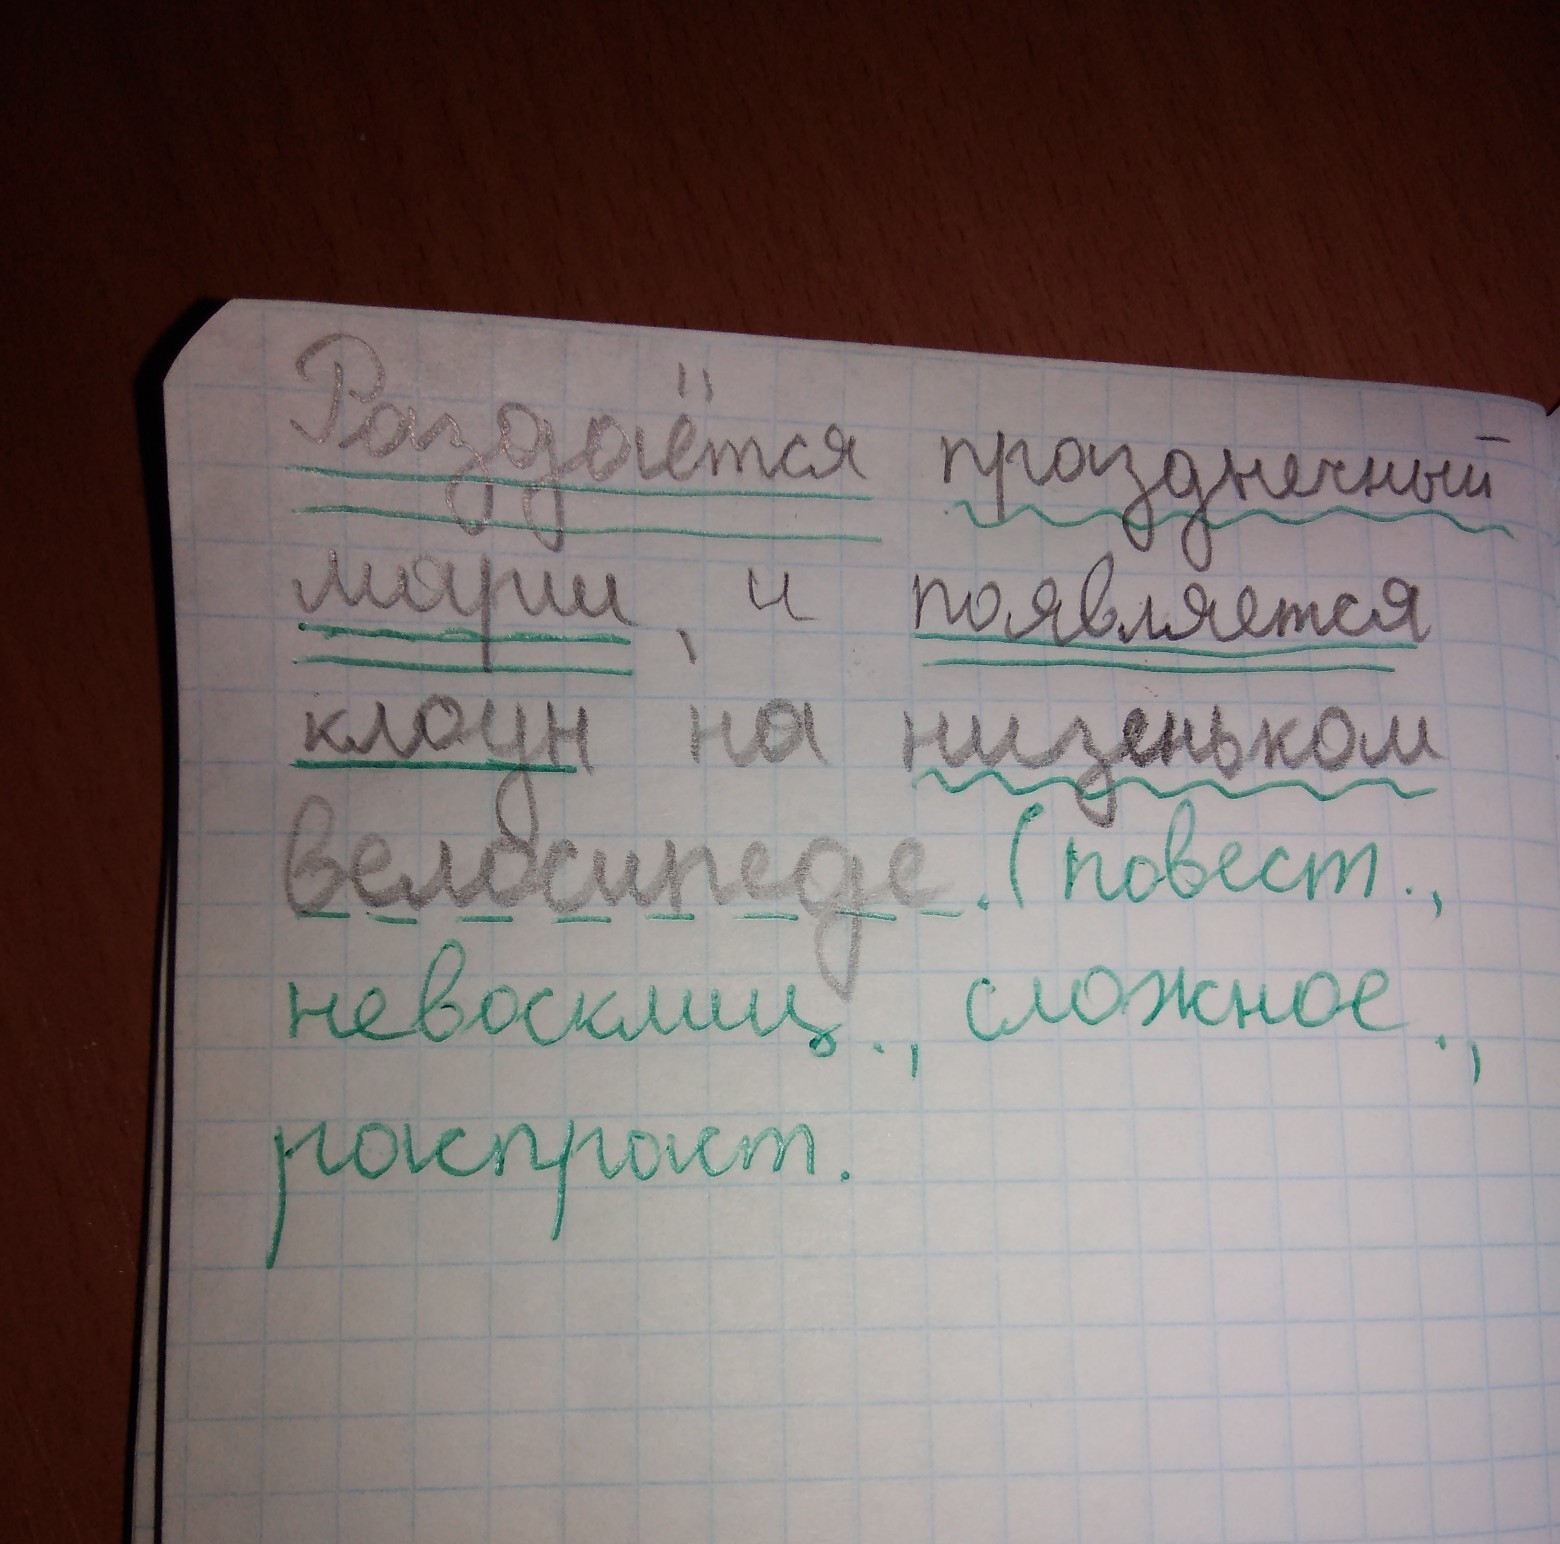 Раздаётся празднечный
марш, и появляется
клоун на низеньком
велосипеде. (повест.,
невосклиц., сложное.,
распраст.